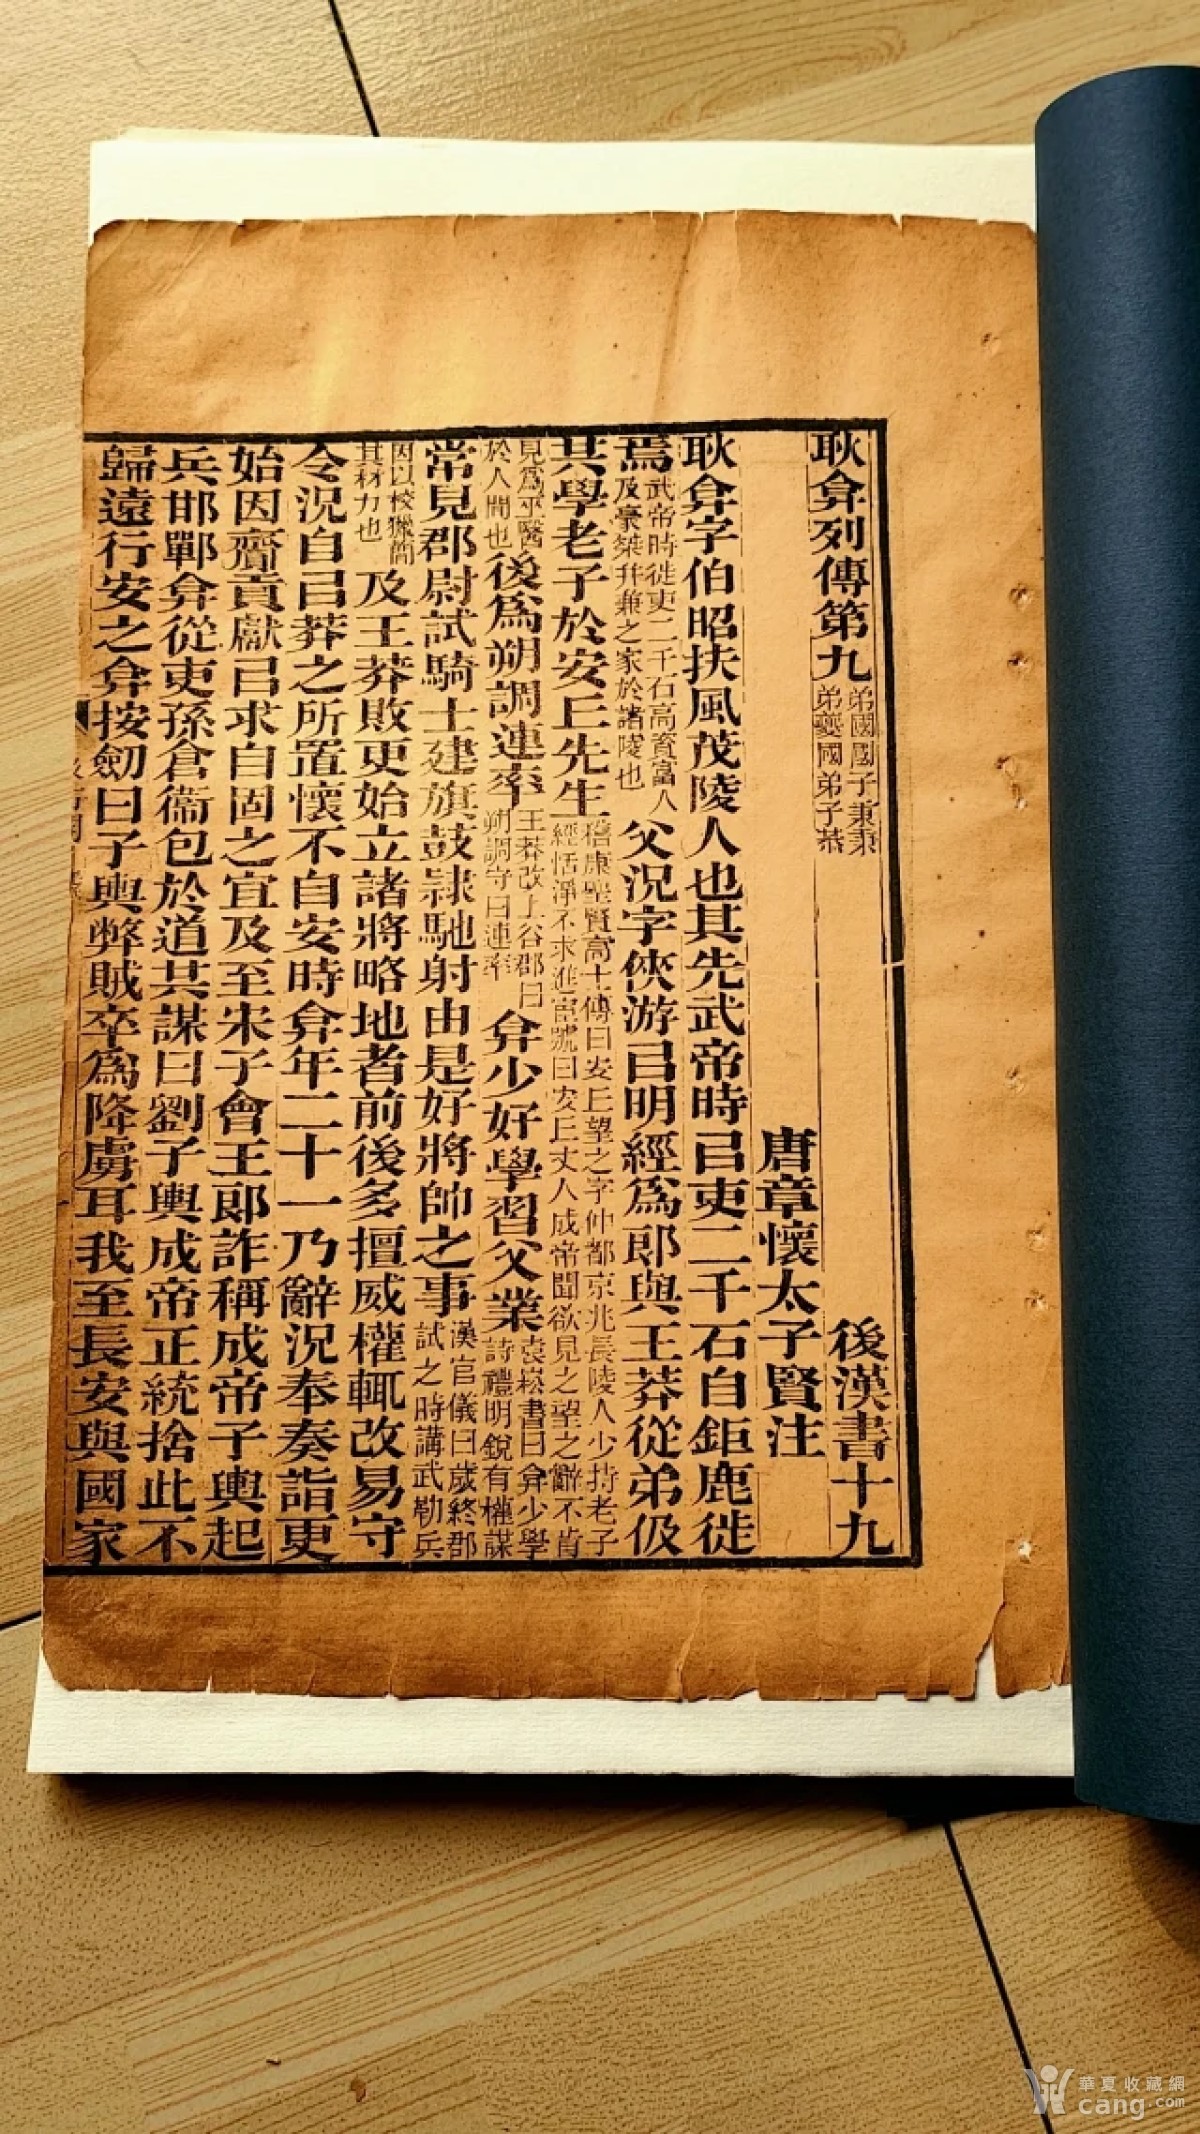 耿弇列傳第九 弟國國子秉秉 弟夔國弟子恭 後漢書十九
唐章懷太子賢注
耿弇字伯昭扶風茂陵人也其先武帝時㠯吏二千石自鉅鹿徙
焉 武帝時徙吏二千石高資富人 及豪桀并兼之家於諸陵也 父況字俠游㠯明經爲郎與王莽從弟伋
共學老子於安丘先生 嵇康聖賢高士傳曰安丘望之字仲都京兆長陵人少持老子 經恬淨不求進宦號曰安丘丈人成帝聞欲見之望之辭不肯
見爲巫醫 於人間也 後爲朔調連率 王莽改上谷郡曰 朔調守曰連率 弇少好學習父業 袁崧書曰弇少學 詩禮明銳有權謀
常見郡尉試騎士建旗鼓肄馳射由是好將帥之事 漢官儀曰歲終郡 試之時講武勒兵
因以校獵簡 其材力也 及王莽敗更始立諸將略地者前後多擅威權輒改易守
令況自㠯莽之所置懷不自安時弇年二十一乃辭況奉奏詣更
始因齎貢獻㠯求自固之宜及至宋子會王郎詐稱成帝子輿起
兵邯鄲弇從吏孫倉衞包於道共謀曰劉子輿成帝正統捨此不
歸遠行安之弇按劒曰子輿弊賊卒爲降虜耳我至長安與國家
華夏收藏網
cang.com